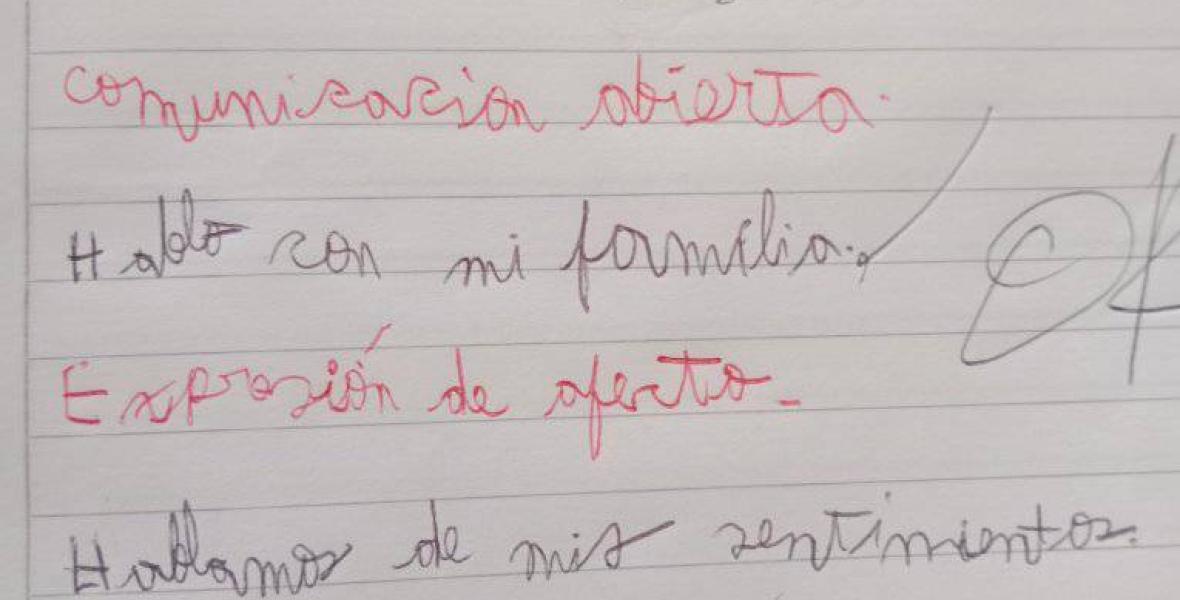 comunicacion abierta.
Hablo con mi familia.
Expresión de afecto-
Hablamos de mis sentimientos.